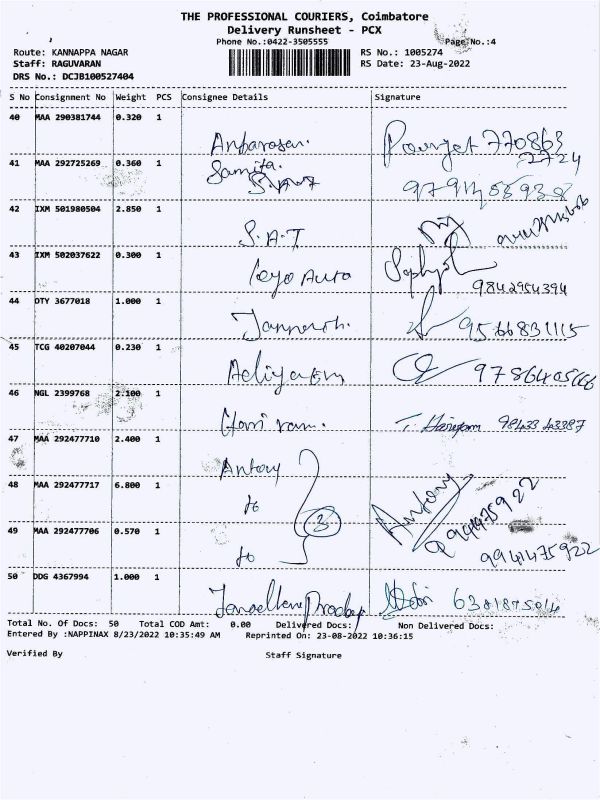 THE PROFESSIONAL COURIERS, Coimbatore
Delivery Runsheet - PCX
Phone No.:0422-3505555
Page No.:4
Route: KANNAPPA NAGAR
RS No.: 1005274
Staff: RAGUVARAN
RS Date: 23-Aug-2022
DRS No.: DCJB100527404
S No Consignment No Weight PCS Consignee Details Signature
40 MAA 290381744 0.320 1
Anbarasan.
41 MAA 292725269 0.360 1
Samita.
42 IXM 501980504 2.850 1
S.A.T
43 IXM 502037622 0.300 1
9842954394
44 OTY 3677018 1.000 1
9566831115
45 TCG 40207044 0.230 1
46 NGL 2399768 2.100 1
Hari ram. T. Hariram 98433 43387
47 MAA 292477710 2.400 1
Antony
48 MAA 292477717 6.800 1
to 3 Antony
49 MAA 292477706 0.570 1
to 9941475922
50 DDG 4367994 1.000 1
Total No. Of Docs: 50 Total COD Amt: 0.00 Delivered Docs: Non Delivered Docs:
Entered By :NAPPINAX 8/23/2022 10:35:49 AM Reprinted On: 23-08-2022 10:36:15
Verified By Staff Signature